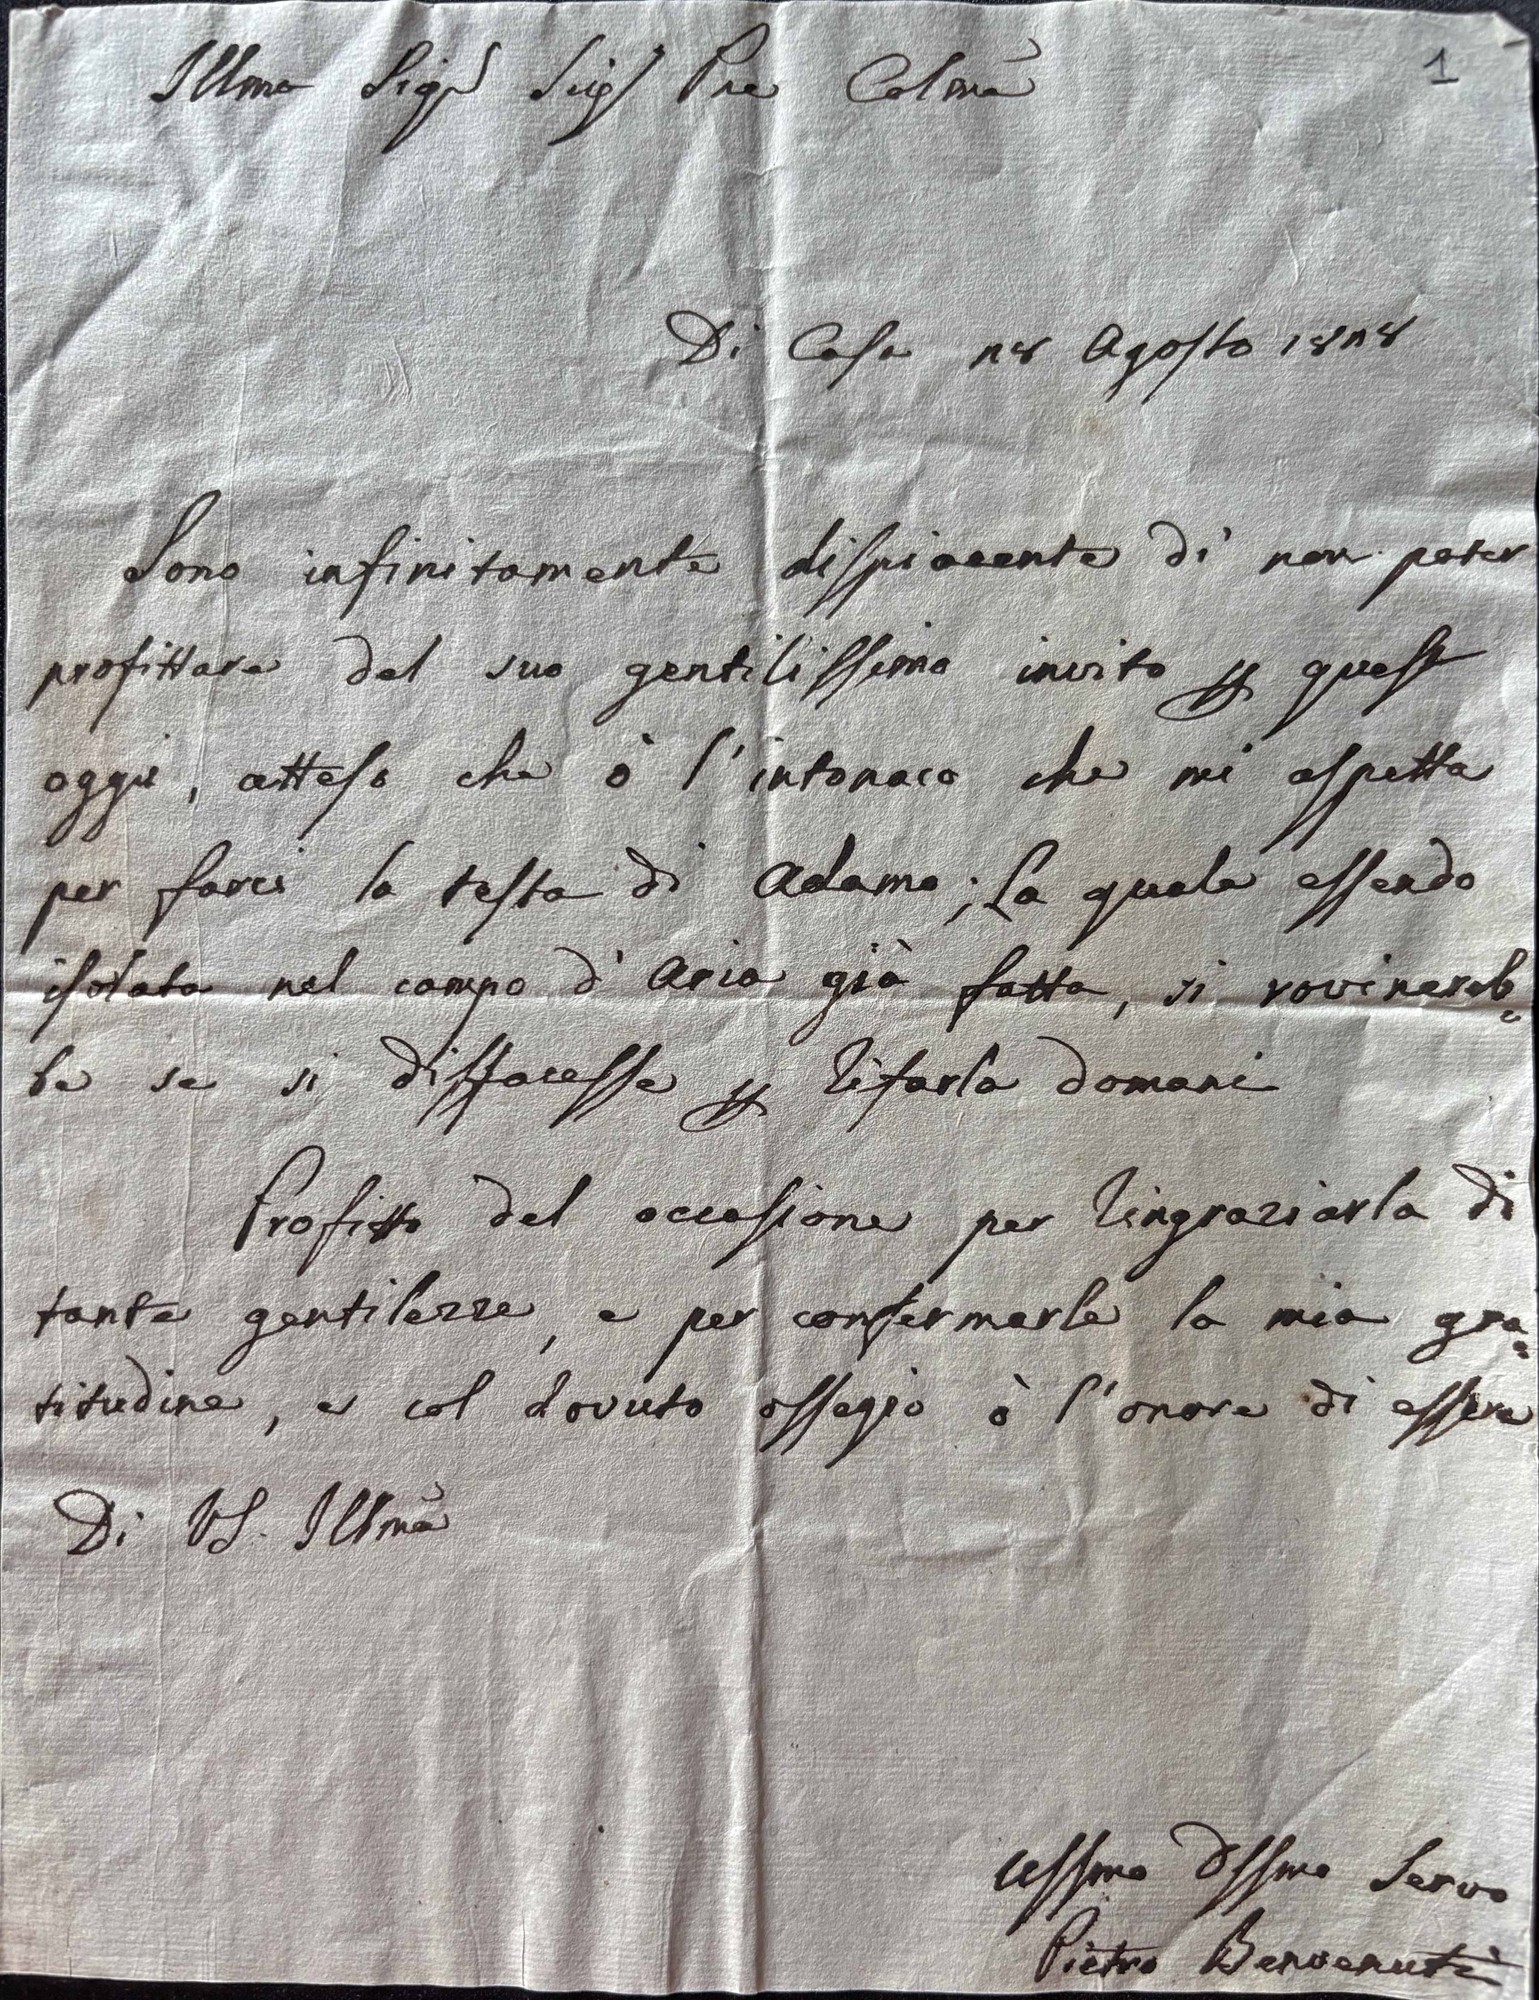 Illmo Sigr Sigr Pne Colmo
1
Di Casa 28 Agosto 1828
Sono infinitamente dispiacente di non poter
profittare del suo gentilissimo invito p quest
oggi, atteso che ò l'intonaco che mi aspetta
per farci la testa di Adamo; la quale essendo
isolata nel campo d'Aria già fatta, si rovinereb=
be se si disfacesse p rifarla domani
Profitto del occasione per ringraziarla di
tante gentilezze, e per confermarle la mia gra=
titudine, e col dovuto ossegio ò l'onore di essere
Di VS. Illma
Dssmo Servo
Pietro Benvenuti